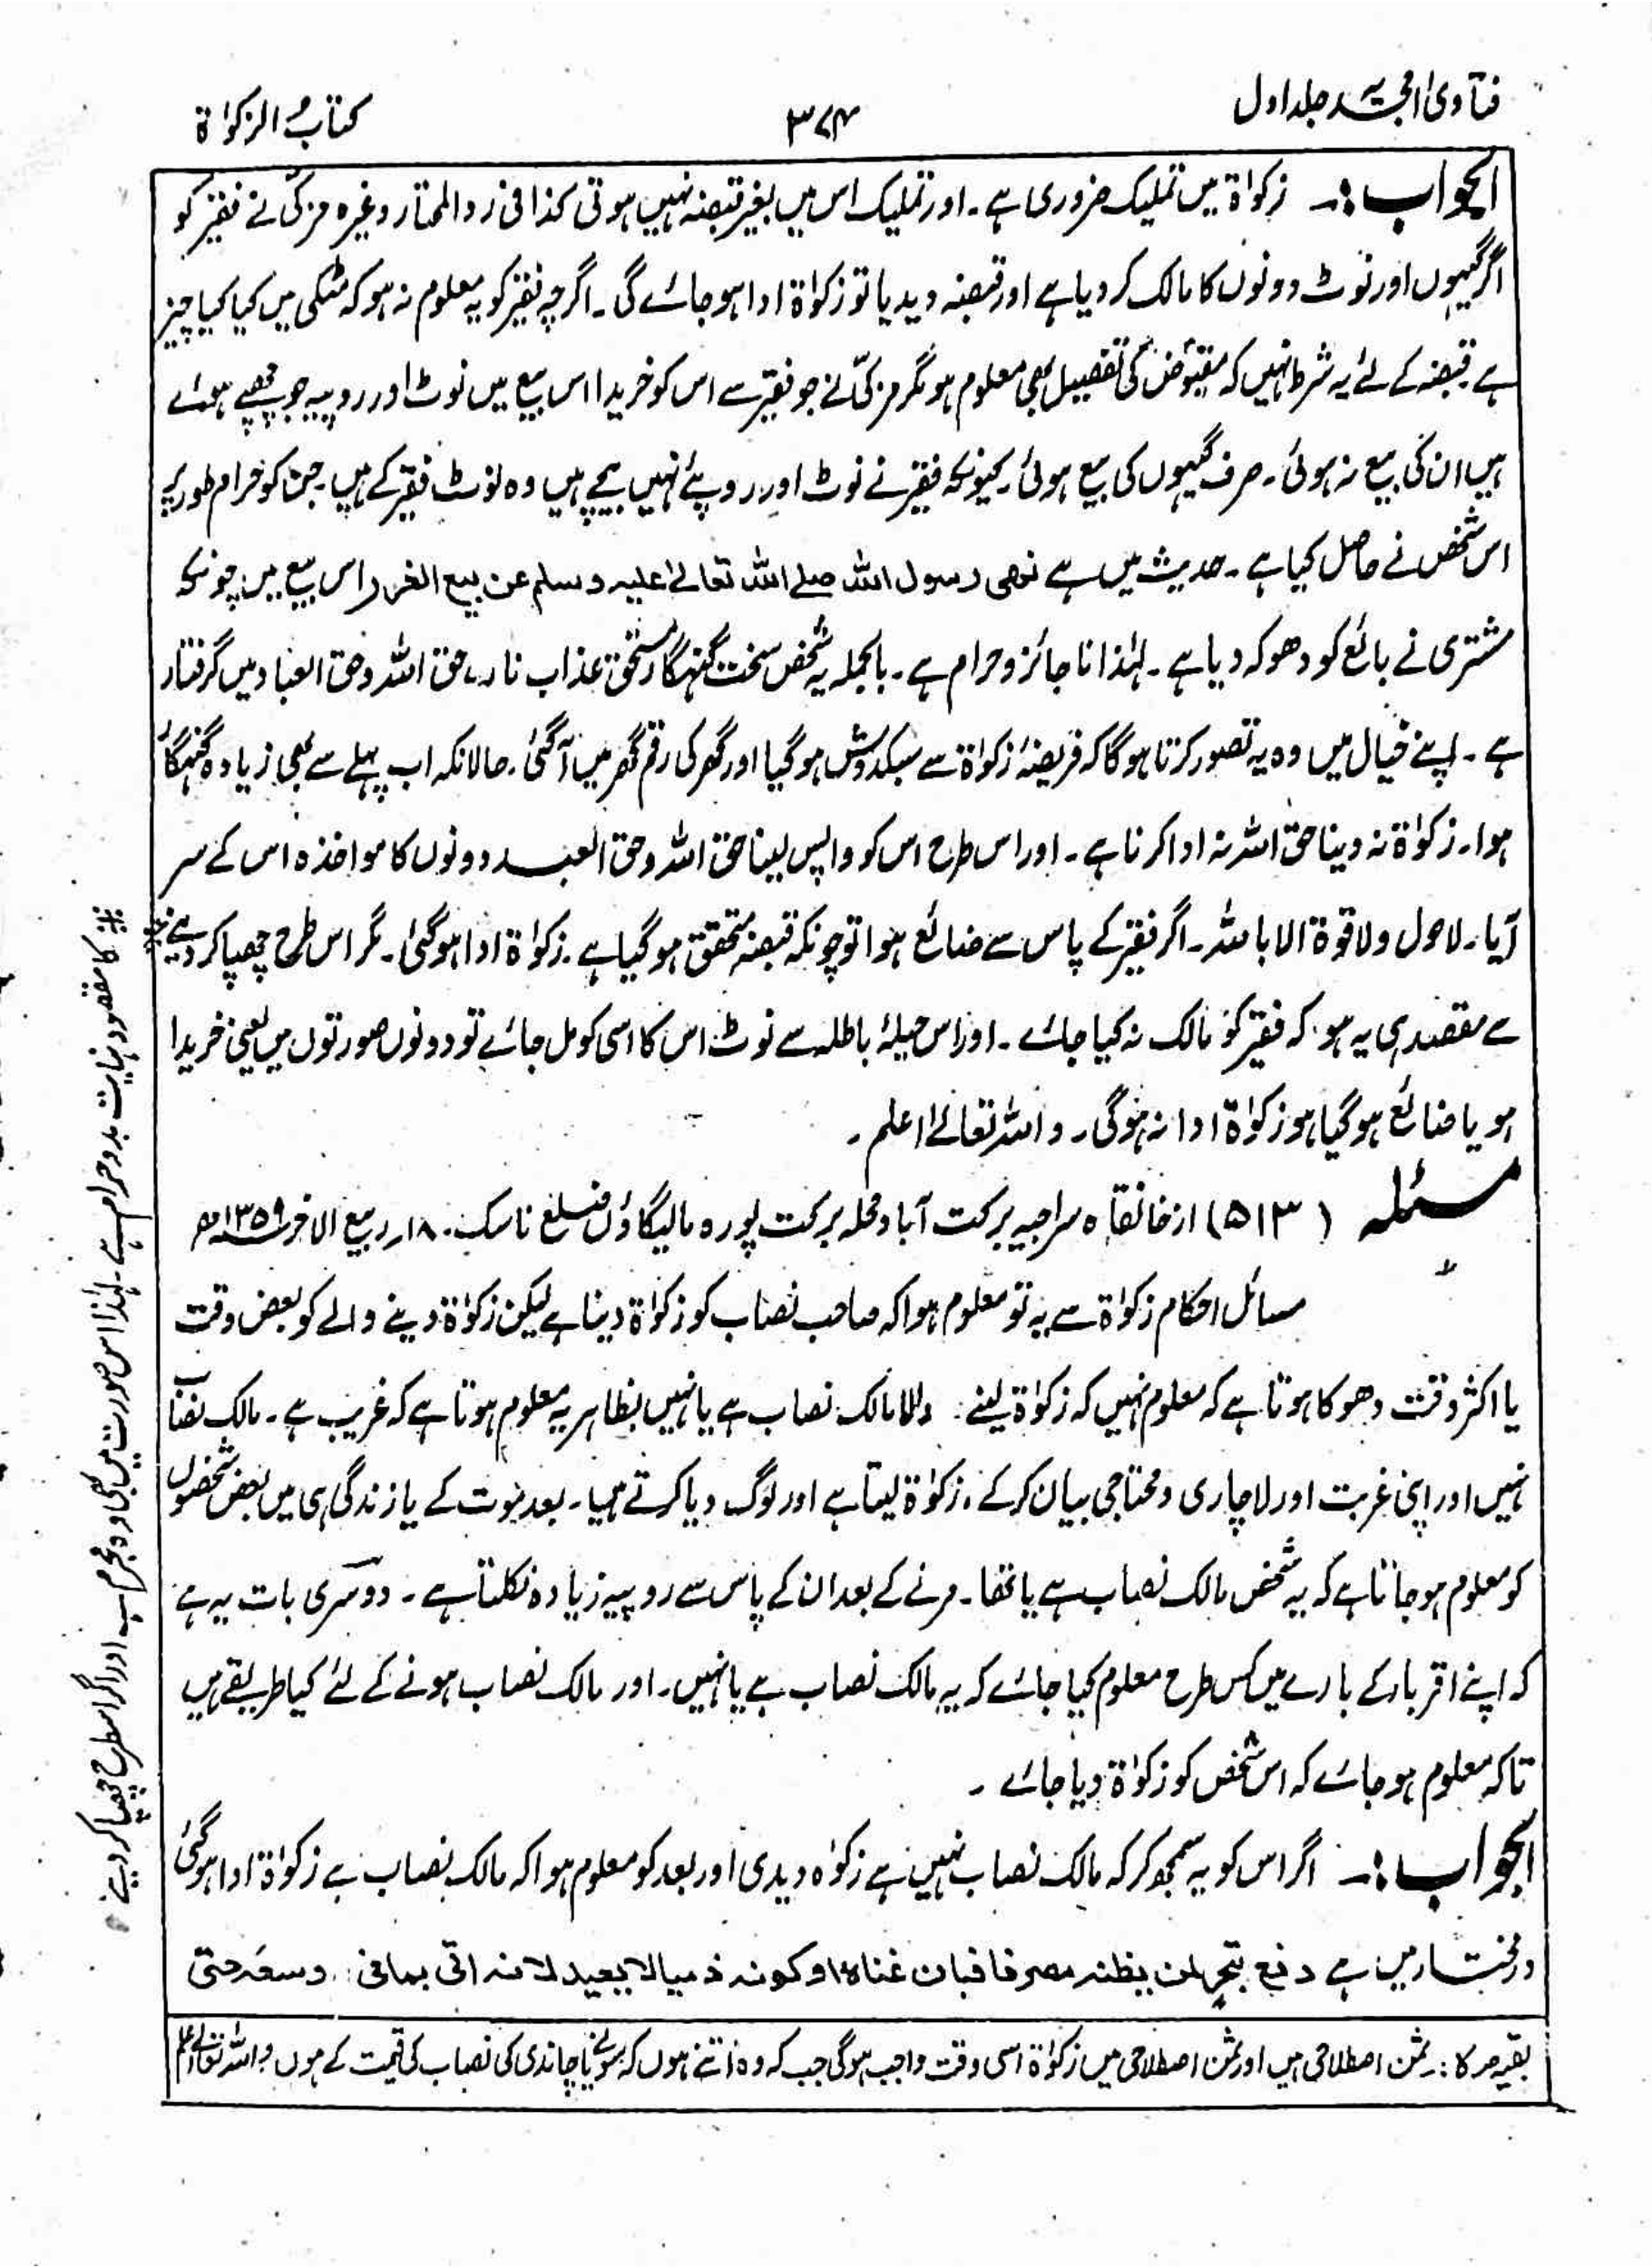 فتاویٰ امجدیہ جلد اول
۳۷۴
کتاب الزکوٰۃ
الجواب:۔ زکوٰۃ میں تملیک ضروری ہے۔ اور تملیک اس میں بغیر قبضہ نہیں ہوتی کذا فی رد المحتار وغیرہ مزکی نے فقیر کو
اگر گیہوں اور نوٹ دونوں کا مالک کر دیا ہے اور قبضہ دیدیا تو زکوٰۃ ادا ہو جائے گی۔ اگرچہ فقیر کو یہ معلوم نہ ہو کہ مٹکی میں کیا کیا چیز
ہے قبضہ کے لئے یہ شرط نہیں کہ مقبوض کی تفصیل بھی معلوم ہو مگر مزکی نے جو فقیر سے اس کو خریدا اس بیع میں نوٹ اور روپیہ جو چھپے ہوئے
ہیں ان کی بیع نہ ہوئی۔ صرف گیہوں کی بیع ہوئی۔ کیونکہ فقیر نے نوٹ اور روپئے نہیں بیچے ہیں وہ نوٹ فقیر کے ہیں۔ جن کو حرام طور پر
اس شخص نے حاصل کیا ہے۔ حدیث میں ہے نھی رسول اللہ صلے اللہ تعالےٰ علیہ وسلم عن بیع الغرر اس بیع میں چونکہ
مشتری نے بائع کو دھوکہ دیا ہے۔ لہٰذا ناجائز و حرام ہے۔ بالجملہ یہ شخص سخت گنہگار مستحق عذاب نار، حق اللہ و حق العباد میں گرفتار
ہے۔ اپنے خیال میں وہ یہ تصور کرتا ہوگا کہ فریضۂ زکوٰۃ سے سبکدوش ہو گیا اور گھر کی رقم گھر میں آگئی۔ حالانکہ اب پہلے سے بھی زیادہ گنہگار
ہوا۔ زکوٰۃ نہ دینا حق اللہ نہ ادا کرنا ہے۔ اور اس طرح اس کو واپس لینا حق اللہ وحق العبد دونوں کا مواخذہ اس کے سر
آیا۔ لاحول ولا قوۃ الا باللہ۔ اگر فقیر کے پاس سے ضائع ہوا تو چونکہ قبضہ متحقق ہو گیا ہے۔ زکوٰۃ ادا ہو گئی۔ مگر اس طرح چھپا کر دینے
سے مقصد ہی یہ ہو کہ فقیر کو مالک نہ کیا جائے۔ اور اس حیلۂ باطلہ سے نوٹ اس کا اسی کو مل جائے تو دونوں صورتوں میں یعنی خریدا
ہو یا ضائع ہو گیا ہو زکوٰۃ ادا نہ ہوگی۔ واللہ تعالےٰ اعلم۔
مسئلہ (۵۱۳) از خانقاہ سراجیہ برکت آباد محلہ برکت پورہ مالیگاؤں ضلع ناسک۔ ۱۸؍ ربیع الآخر ۱۳۵۹ھ
مسائل احکام زکوٰۃ سے یہ تو معلوم ہوا کہ صاحب نصاب کو زکوٰۃ دینا ہے لیکن زکوٰۃ دینے والے کو بعض وقت
یا اکثر وقت دھوکا ہوتا ہے کہ معلوم نہیں کہ زکوٰۃ لینے والا مالک نصاب ہے یا نہیں بظاہر یہ معلوم ہوتا ہے کہ غریب ہے۔ مالک نصاب
نہیں اور اپنی غربت اور لاچاری و محتاجی بیان کر کے زکوٰۃ لیتا ہے اور لوگ دیا کرتے ہیں۔ بعد موت کے یا زندگی ہی میں بعض شخصوں
کو معلوم ہو جاتا ہے کہ یہ شخص مالک نصاب ہے یا تھا۔ مرنے کے بعد ان کے پاس سے روپیہ زیادہ نکلتا ہے۔ دوسری بات یہ ہے
کہ اپنے اقربا کے بارے میں کس طرح معلوم کیا جائے کہ یہ مالک نصاب ہے یا نہیں۔ اور مالک نصاب ہونے کے لئے کیا طریقے ہیں
تاکہ معلوم ہو جائے کہ اس شخص کو زکوٰۃ دیا جائے۔
الجواب:۔ اگر اس کو یہ سمجھ کر کہ مالک نصاب نہیں ہے زکوٰۃ دیدی اور بعد کو معلوم ہوا کہ مالک نصاب ہے زکوٰۃ ادا ہو گئی
درمختار میں ہے دفع بتحر لمن یظنہ مصرفا فبان غناہ او کونہ ذمیا لا یعید لانہ اتی بما فی وسعہ حتی
بقیہ ص کا:۔ ثمن اصطلاحی ہیں اور ثمن اصطلاحی میں زکوٰۃ اسی وقت واجب ہوگی جب کہ وہ اتنے ہوں کہ سونے یا چاندی کی نصاب کی قیمت کے ہوں واللہ تعالیٰ اعلم
کا مقصود نہایت بد و حرام ہے۔ لہٰذا اس صورت میں بھی وہ مجرم ہے اور اگر اس طرح چھپا کر دینے